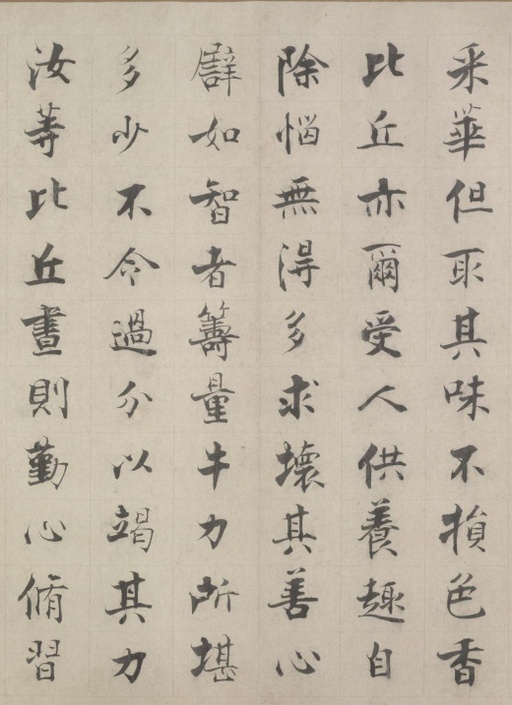 采華但取其味不損色香
比丘亦爾受人供養趣自
除惱無得多求壞其善心
譬如智者籌量牛力所堪
多少不令過分以竭其力
汝等比丘晝則勤心脩習